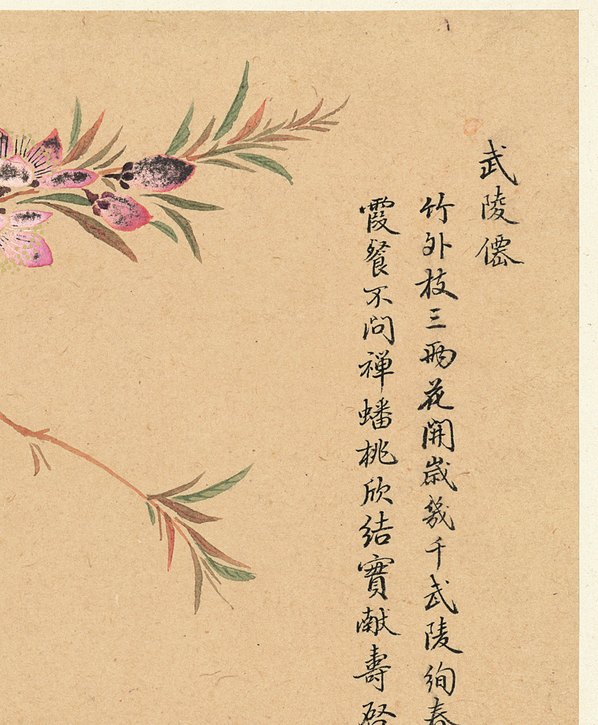 武陵僊
竹外枝三兩花開歲幾千武陵絢春
霞餐不問禅蟠桃欣結實献壽啓